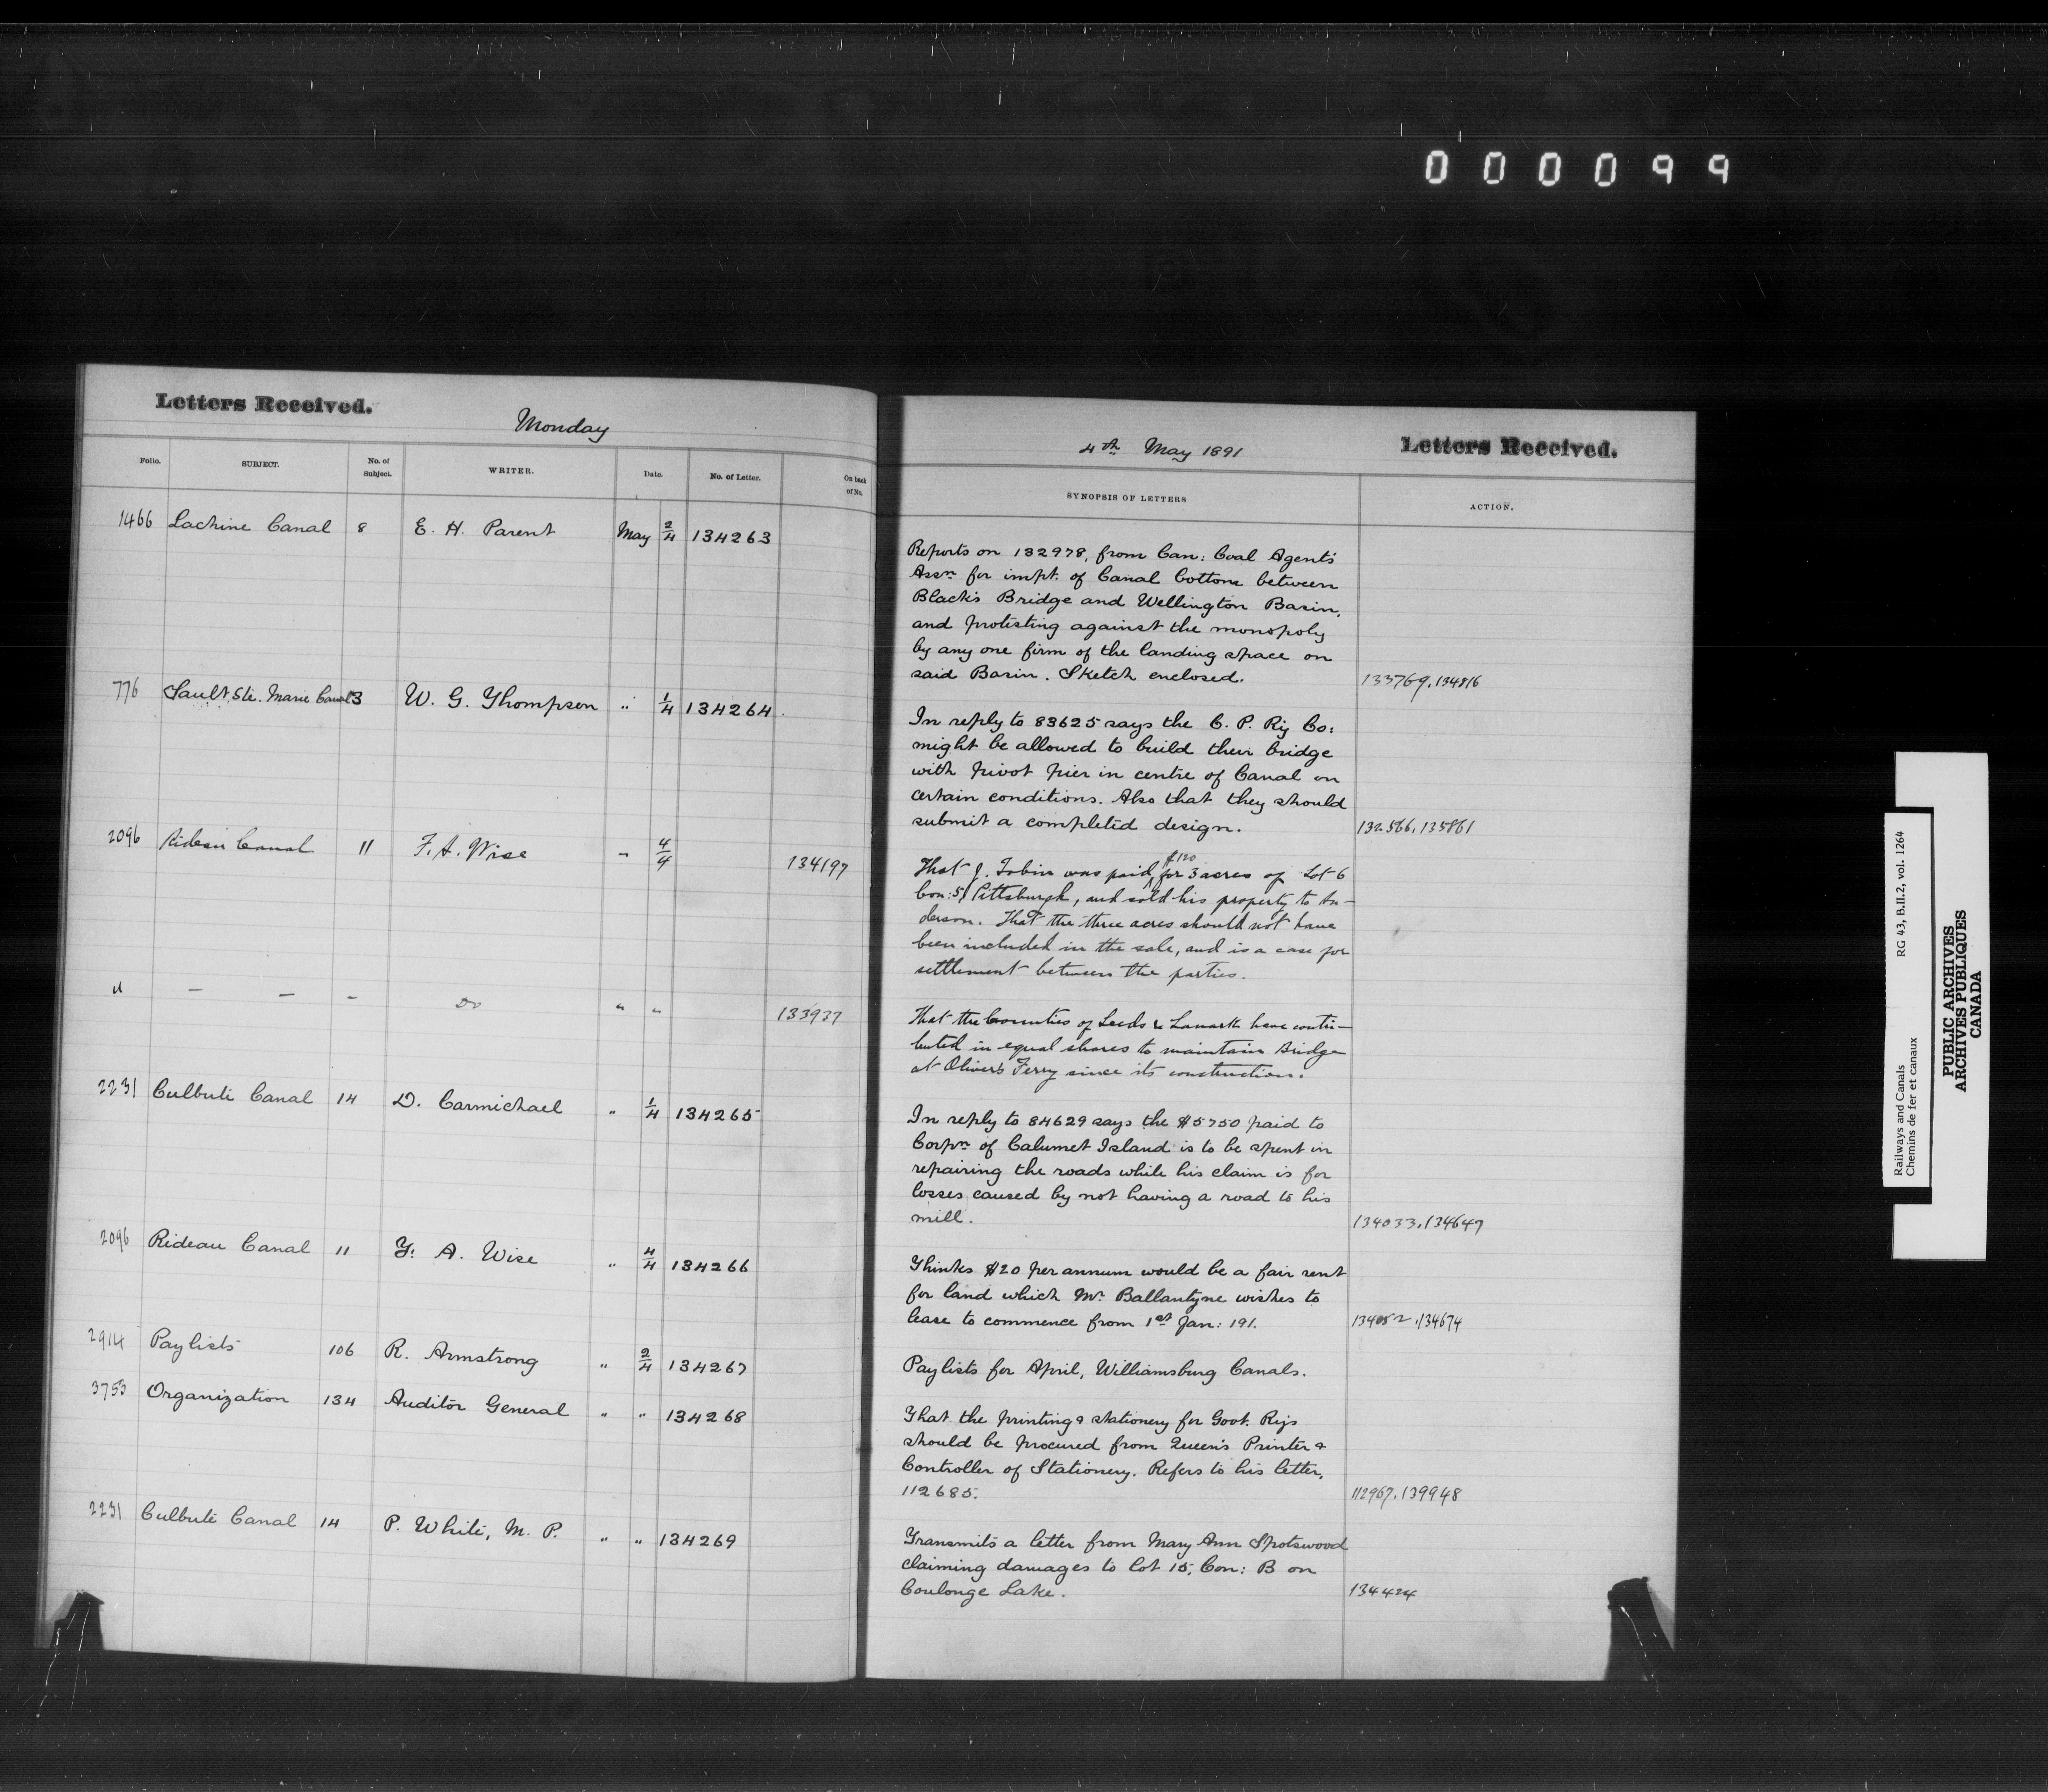 000099
Letters Received.
Monday
Folio. SUBJECT. No. of Subject. WRITER. Date. No. of Letter. On back of No.
1466 Lachine Canal 8 E. H. Parent May 2/4 134263
776 Sault Ste. Marie Canal 3 W. G. Thompson " 1/4 134264
2096 Rideau Canal 11 F. A. Wise " 4/4 134197
" — — — Do " " 133937
2231 Culbute Canal 14 D. Carmichael " 1/4 134265
2096 Rideau Canal 11 F. A. Wise " 4/4 134266
2914 Paylists 106 R. Armstrong " 2/4 134267
3753 Organization 134 Auditor General " " 134268
2231 Culbute Canal 14 P. White, M. P. " " 134269
4th May 1891
Letters Received.
SYNOPSIS OF LETTERS ACTION.
Reports on 132978, from Can: Coal Agents'
Assn for impt. of Canal bottoms between
Black's Bridge and Wellington Basin,
and protesting against the monopoly
by any one firm of the landing space on
said Basin. Sketch enclosed. 133769, 134816
In reply to 83625 says the C. P. Ry Co:
might be allowed to build their bridge
with pivot pier in centre of Canal on
certain conditions. Also that they should
submit a completed design. 132566, 135861
That J. Tobin was paid $120 for 3 acres of Lot 6
Con: 5 Pittsburgh, and sold his property to An-
derson. That the three acres should not have
been included in the sale, and is a case for
settlement between the parties.
That the Counties of Leeds & Lanark have contri-
buted in equal shares to maintain Bridge
at Oliver's Ferry since its construction.
In reply to 84629 says the $5750 paid to
Corpn of Calumet Island is to be spent in
repairing the roads while his claim is for
losses caused by not having a road to his
mill. 134033, 134647
Thinks $20 per annum would be a fair rent
for land which Mr Ballantyne wishes to
lease to commence from 1st Jan: '91. 134052, 134674
Paylists for April, Williamsburg Canals.
That the printing & stationery for Govt. Rys
should be procured from Queen's Printer &
Controller of Stationery. Refers to his letter,
112685. 112967, 139948
Transmits a letter from Mary Ann Spotswood
claiming damages to lot 15, Con: B on
Coulonge Lake. 134424
Railways and Canals RG 43, B.II.2, vol. 1264
Chemins de fer et canaux
PUBLIC ARCHIVES
ARCHIVES PUBLIQUES
CANADA